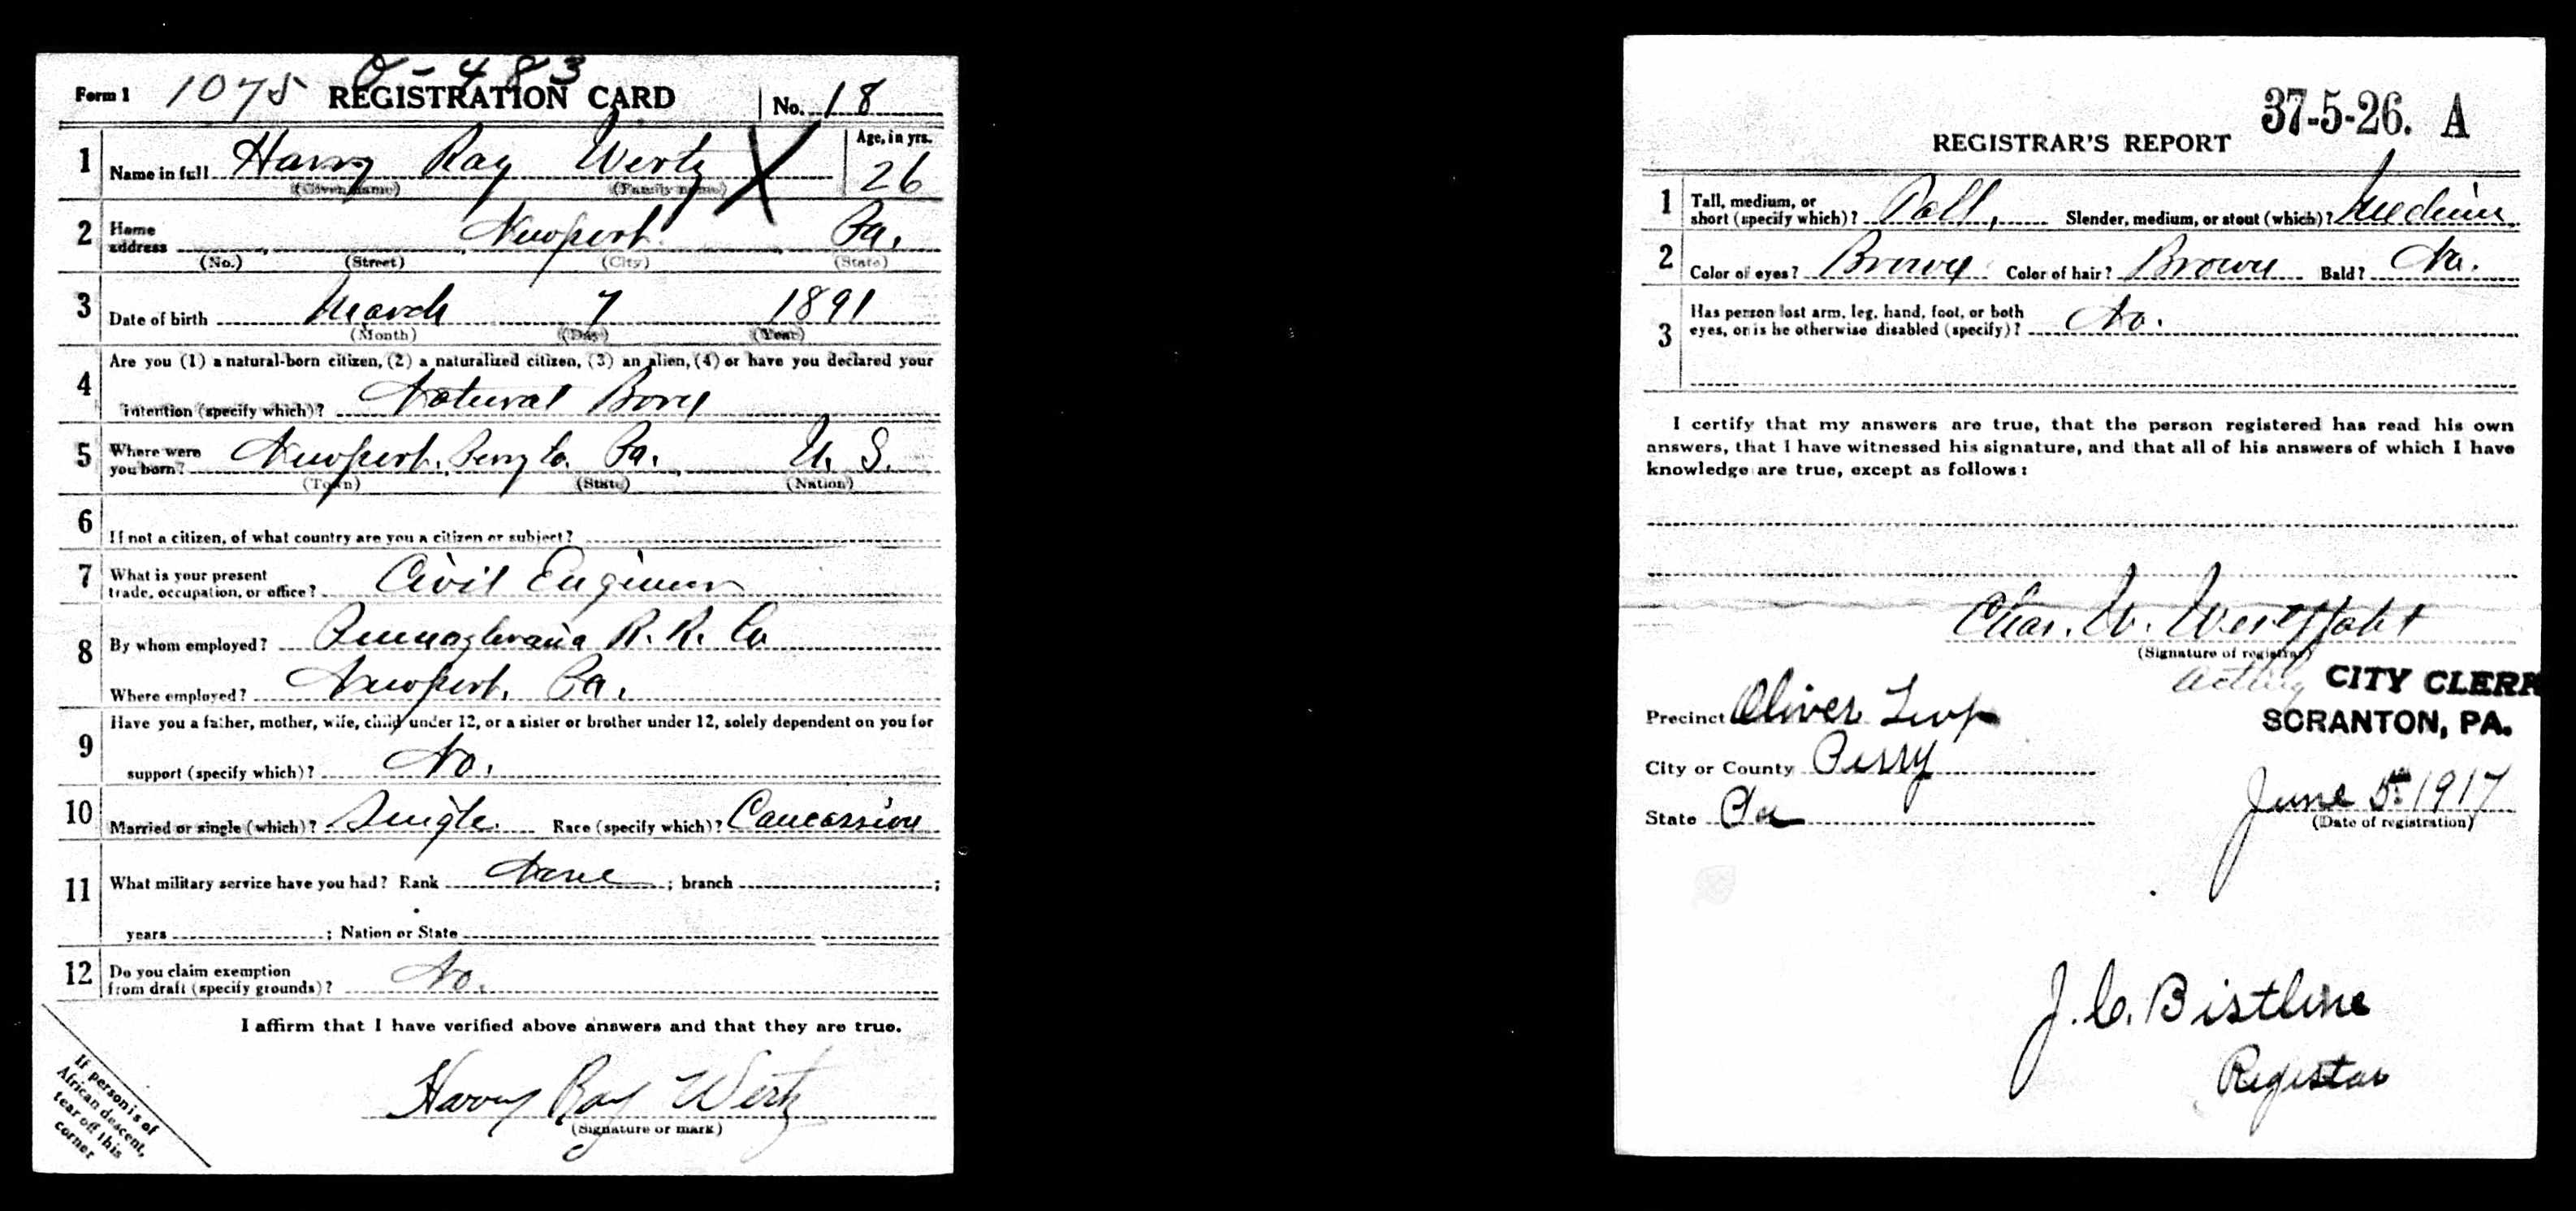 O-483
Form 1 1075 REGISTRATION CARD No. 18
1 Name in full Harry Ray Wertz X Age, in yrs. 26
(Given name) (Family name)
2 Home address Newport Pa.
(No.) (Street) (City) (State)
3 Date of birth March 7 1891
(Month) (Day) (Year)
4 Are you (1) a natural-born citizen, (2) a naturalized citizen, (3) an alien, (4) or have you declared your
intention (specify which)? Natural Born
5 Where were you born? Newport. Perry Co. Pa. U. S.
(Town) (State) (Nation)
6 If not a citizen, of what country are you a citizen or subject?
7 What is your present
trade, occupation, or office? Civil Engineer
8 By whom employed? Pennsylvania R. R. Co
Where employed? Newport. Pa.
9 Have you a father, mother, wife, child under 12, or a sister or brother under 12, solely dependent on you for
support (specify which)? No.
10 Married or single (which)? Single. Race (specify which)? Caucassion
11 What military service have you had? Rank None ; branch ;
years ; Nation or State
12 Do you claim exemption
from draft (specify grounds)? No.
I affirm that I have verified above answers and that they are true.
Harry Ray Wertz
(Signature or mark)
If person is of
African descent,
tear off this
corner
37-5-26. A
REGISTRAR'S REPORT
1 Tall, medium, or
short (specify which)? Tall, Slender, medium, or stout (which)? Medium
2 Color of eyes? Brown Color of hair? Brown Bald? No.
3 Has person lost arm, leg, hand, foot, or both
eyes, or is he otherwise disabled (specify)? No.
I certify that my answers are true, that the person registered has read his own
answers, that I have witnessed his signature, and that all of his answers of which I have
knowledge are true, except as follows:
Chas. W.
(Signature of registrar)
Acting CITY CLERK
SCRANTON, PA.
Precinct Oliver Twp
City or County Perry
State Pa
June 5th 1917
(Date of registration)
J. C. Bistline
Registar